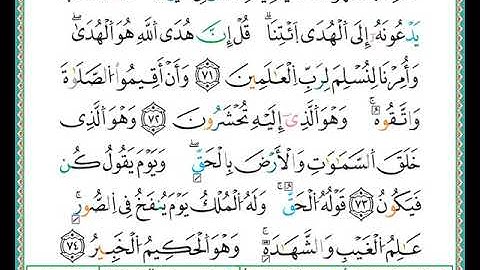 يَدْعُونَهُۥٓ إِلَى ٱلْهُدَى ٱئْتِنَا ۗ قُلْ إِنَّ هُدَى ٱللَّهِ هُوَ ٱلْهُدَىٰ ۖ
وَأُمِرْنَا لِنُسْلِمَ لِرَبِّ ٱلْعَـٰلَمِينَ ﴿٧١﴾ وَأَنْ أَقِيمُوا۟ ٱلصَّلَوٰةَ
وَٱتَّقُوهُ ۚ وَهُوَ ٱلَّذِىٓ إِلَيْهِ تُحْشَرُونَ ﴿٧٢﴾ وَهُوَ ٱلَّذِى
خَلَقَ ٱلسَّمَـٰوَٰتِ وَٱلْأَرْضَ بِٱلْحَقِّ ۖ وَيَوْمَ يَقُولُ كُن
فَيَكُونُ ﴿٧٣﴾ قَوْلُهُ ٱلْحَقُّ ۚ وَلَهُ ٱلْمُلْكُ يَوْمَ يُنفَخُ فِى ٱلصُّورِ ۚ
عَـٰلِمُ ٱلْغَيْبِ وَٱلشَّهَـٰدَةِ ۚ وَهُوَ ٱلْحَكِيمُ ٱلْخَبِيرُ ﴿٧٤﴾